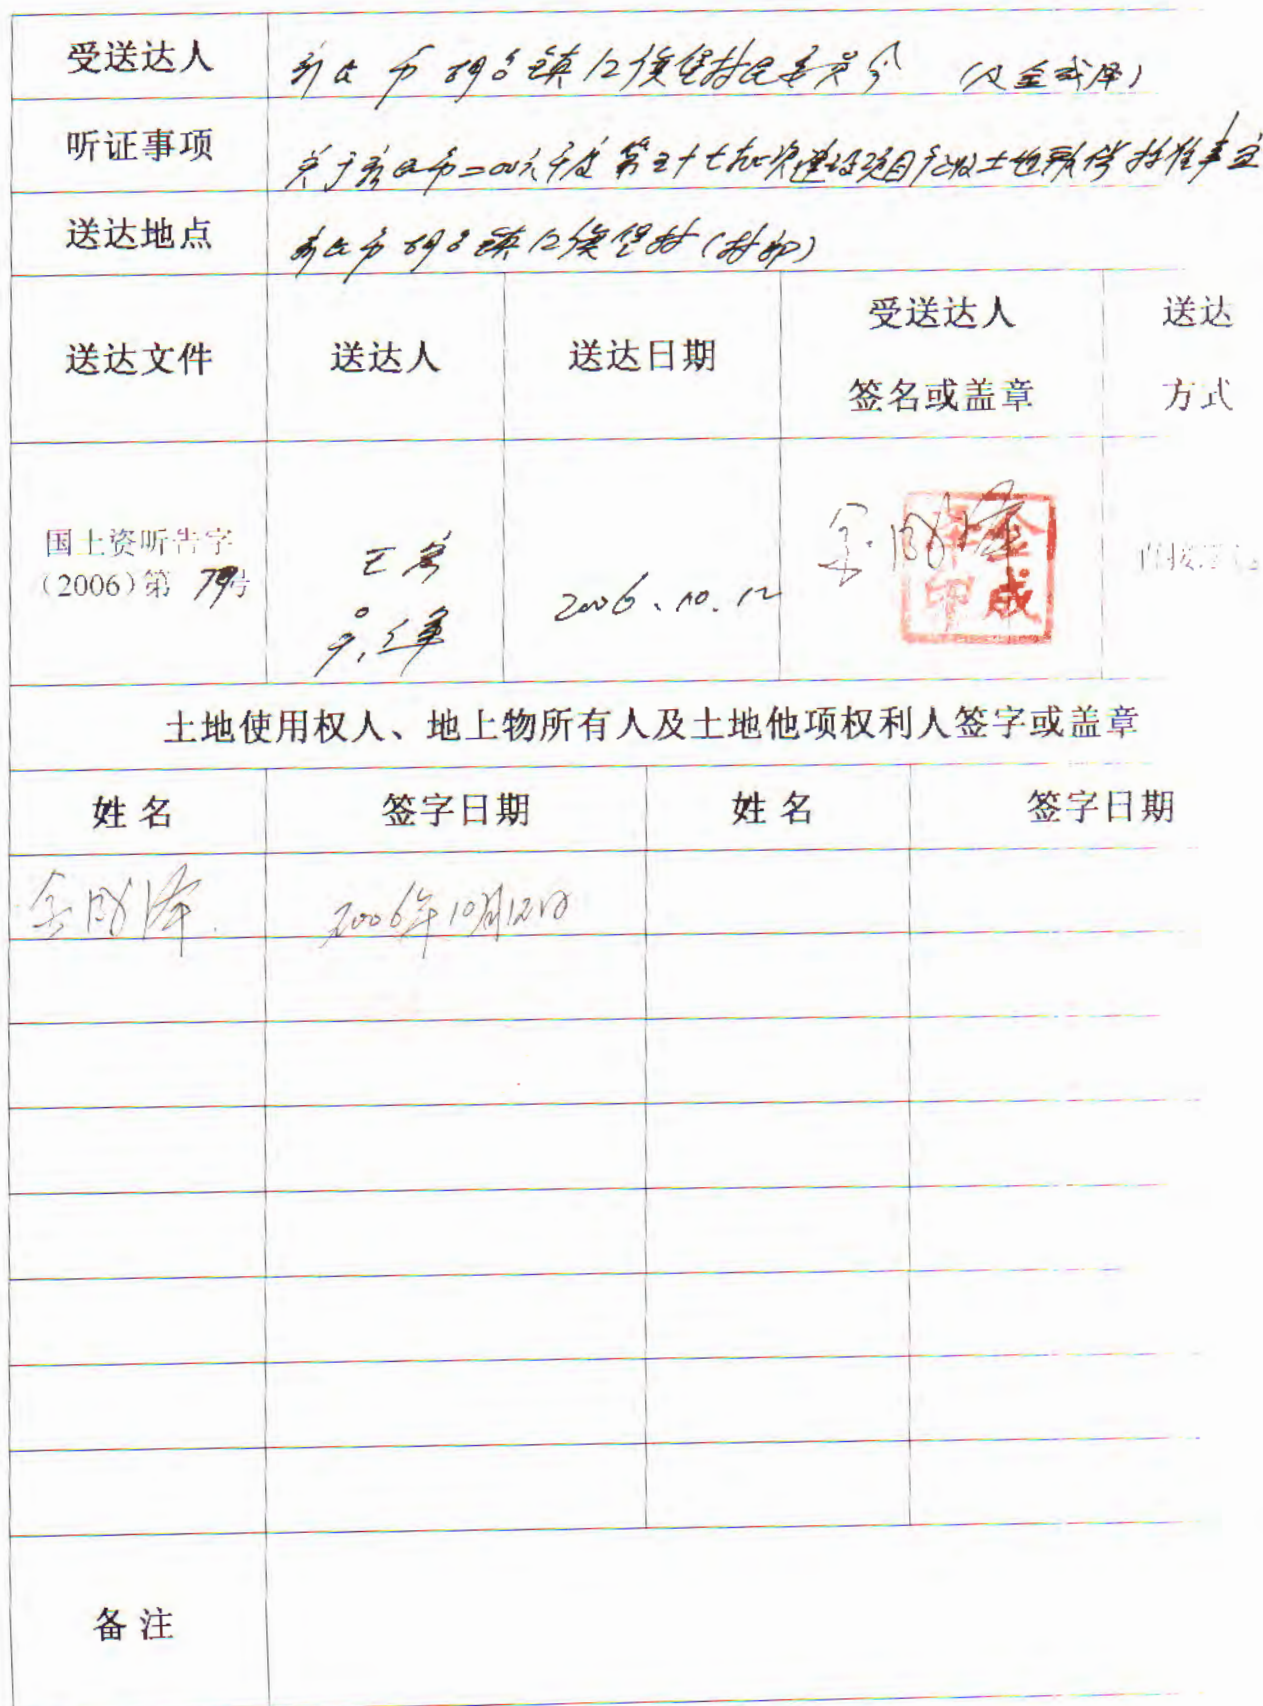 受送达人 新民市胡台镇 堡村民委员会 (及金成泽)
听证事项 关于新民市二00六年度第五十七批次建设项目征收土地补偿标准事宜
送达地点 新民市胡台镇 堡村(村部)
送达文件 送达人 送达日期 受送达人 签名或盖章 送达 方式
国土资听告字
(2006)第79号
2006.10.12
金成泽
金成泽印
直接送达
土地使用权人、地上物所有人及土地他项权利人签字或盖章
姓名 签字日期 姓名 签字日期
金成泽 2006年10月12日
备注